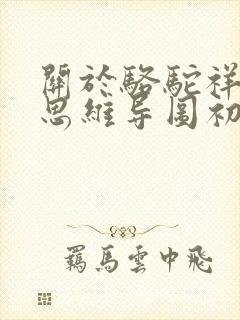 關於駱駝祥
思維导圖初
羈馬雲中飛